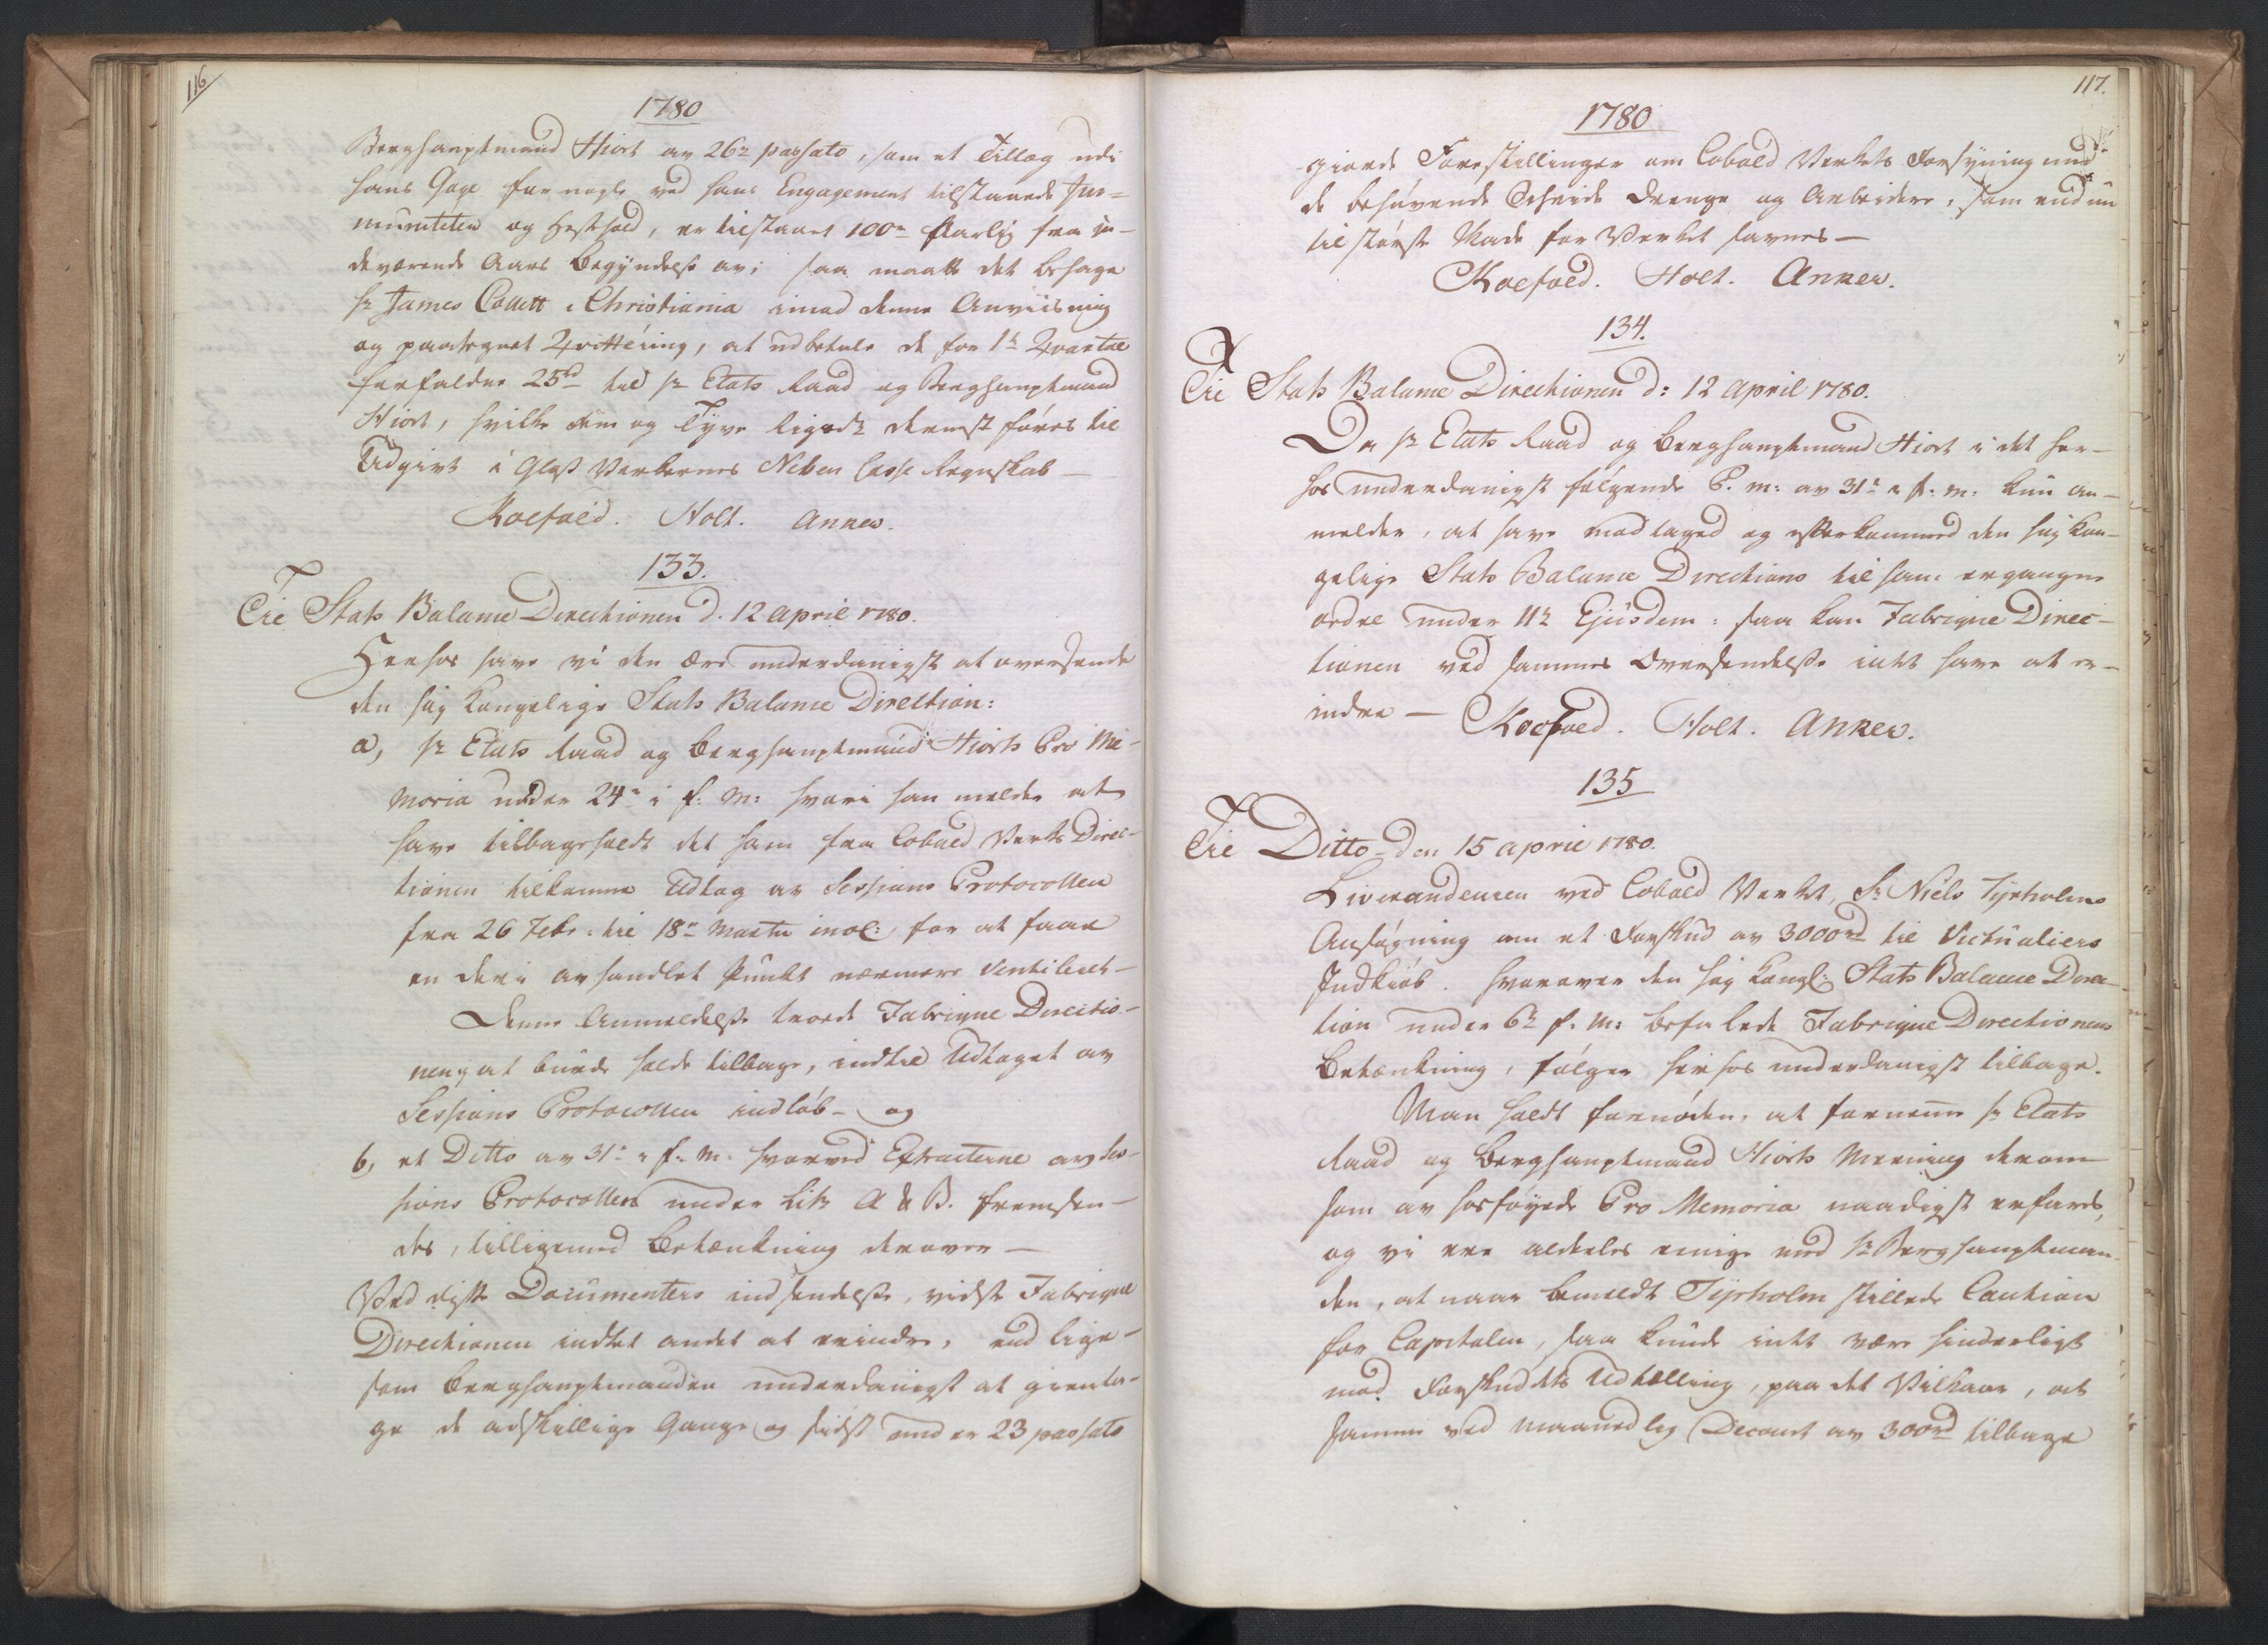 116
1780
Berghauptmand Hiort av 26de passato, som et Tillæg udi
hans Gage for nogle ved hans Engagement tilstaaede Im-
muniteter og Hesthold, er tilstaaet 100rd aarlig fra in-
deværende Aars Begyndelse av; saa maatte det behage
Hr James Collett i Christiania imod denne Anviisning
og paategnet Qvittering, at udbetale de for 1te Qvartal
forfaldne 25rd til Hr Etats Raad og Berghauptmand
Hiort, hvilke Fem og Tyve Rigsdr dernest føres til
Udgivt i Glas Værkernes Neben Casse Regnskab —
Koefoed. Holt. Anker.
133.
Til Stats Balance Directionen d. 12 April 1780.
Herhos have vi den Ære underdanigst at oversende
den høy Kongelige Stats Balance Direction:
a, Hr Etats Raad og Berghauptmand Hiorts Pro Me-
moria under 24de i f: M: hvori han melder at
have tilbageholdt det ham fra Cobold Verks Direc-
tionen tilkomne Udtog av Sessions Protocollen
fra 26 Febr: til 18de Martii incl: for at faae
en deri avhandlet Punkt nærmere Ventileret —
Denne Anmeldelse troede Fabrique Directio-
nen at burde holde tilbage, indtil Udtoget av
Sessions Protocollen indløb — og
b, et Ditto av 31te i f: M: hvorved Extracterne av Ses-
sions Protocollen under Litr. A & B. fremsen-
des, tilligemed Betænkning derover —
Ved disse Documenters indsendelse, vidste Fabrique
Directionen indtet andet at erindre, end lige-
som Berghauptmanden underdanigst at gienta-
ge de adskillige Gange og sidst under 23 passato
117.
1780
giorde Forestillinger om Cobold Verkets Forsyning med
de behøvende Scheide Drenge og Arbeidere, som endnu
til største Skade for Verket savnes —
Koefoed. Holt. Anker.
134.
Til Stats Balance Directionen d: 12 April 1780.
Da Hr Etats Raad og Berghauptmand Hiort i det her-
hos underdanigst følgende P. M: av 31te i f: M: kun an-
melder, at have modtaged og efterkommed den høy Kon-
gelige Stats Balance Directions til ham ergangne
Ordre under 11te Ejusdem: saa kan Fabrique Direc-
tionen ved sammes Oversendelse intet have at er-
indre — Koefoed. Holt. Anker.
135
Til Ditto den 15 April 1780.
Liverandeuren ved Cobold Verket, Sr Niels Tyrholms
Ansøgning om et Forskud av 3000rd til Victualiers
Indkiøb. hvorover den høy Kongl: Stats Balance Direc-
tion under 6te f. M: befalede Fabrique Directionens
Betænkning, følger herhos underdanigst tilbage.
Man holdt fornøden, at fornemme Hr Etats
Raad og Berghauptmand Hiorts Meening derom
som av hosføyede Pro Memoria naadigst erfares,
og vi ere aldeles eenige med Hr Berghauptman-
den, at naar bemeldte Tyrholm stillede Caution
for Capitalen, saa kunde intet være hinderligt
mod Forskuddets Udtælling, paa det Vilkaar, at
samme ved maanedlig Decourt av 300rd tilbage